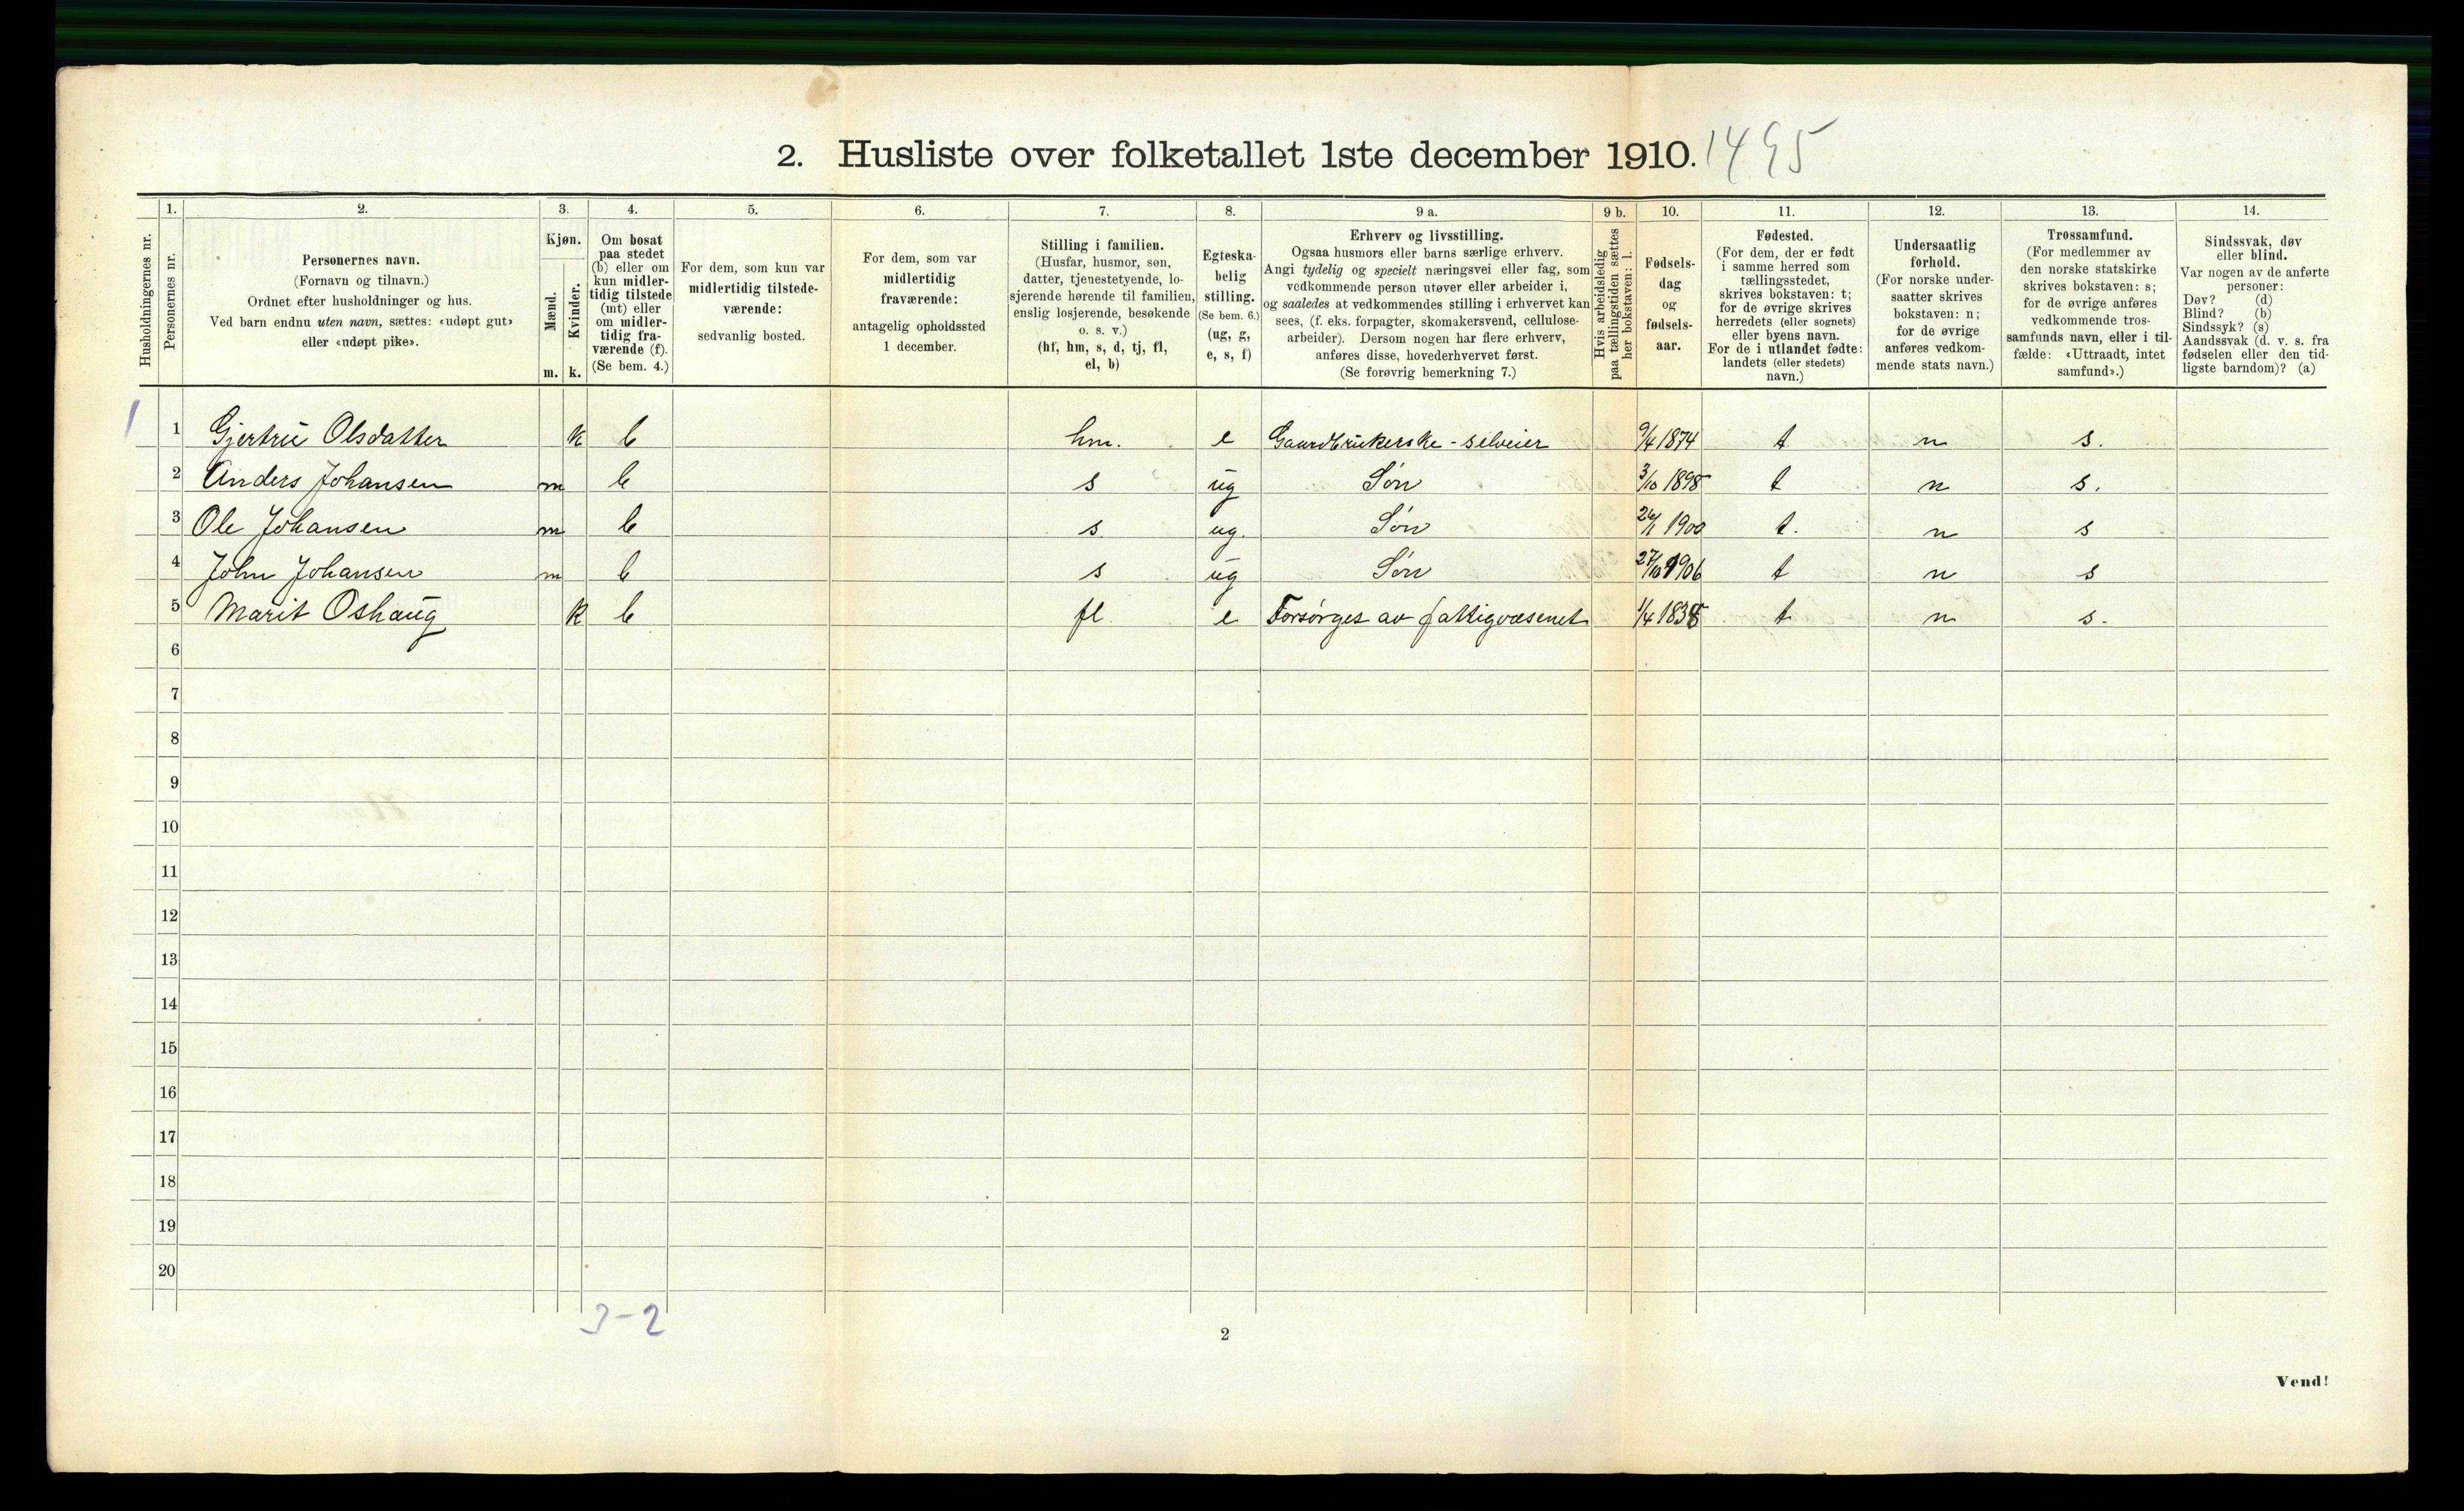 2. Husliste over folketallet 1ste december 1910. 1495
Husholdningernes nr.
1.
Personernes nr.
2.
Personernes navn.
(Fornavn og tilnavn.)
Ordnet efter husholdninger og hus.
Ved barn endnu uten navn, sættes: «udøpt gut»
eller «udøpt pike».
3.
Kjøn.
Mænd.
m.
Kvinder.
k.
4.
Om bosat
paa stedet
(b) eller om
kun midler-
tidig tilstede
(mt) eller
om midler-
tidig fra-
værende (f).
(Se bem. 4.)
5.
For dem, som kun var
midlertidig tilstede-
værende:
sedvanlig bosted.
6.
For dem, som var
midlertidig
fraværende:
antagelig opholdssted
1 december.
7.
Stilling i familien.
(Husfar, husmor, søn,
datter, tjenestetyende, lo-
sjerende hørende til familien,
enslig losjerende, besøkende
o. s. v.)
(hf, hm, s, d, tj, fl,
el, b)
8.
Egteska-
belig
stilling.
(Se bem. 6.)
(ug, g,
e, s, f)
9 a.
Erhverv og livsstilling.
Ogsaa husmors eller barns særlige erhverv.
Angi tydelig og specielt næringsvei eller fag, som
vedkommende person utøver eller arbeider i,
og saaledes at vedkommendes stilling i erhvervet kan
sees, (f. eks. forpagter, skomakersvend, cellulose-
arbeider). Dersom nogen har flere erhverv,
anføres disse, hovederhvervet først.
(Se forøvrig bemerkning 7.)
9 b.
Hvis arbeidsledig
paa tællingstiden sættes
her bokstaven: l.
10.
Fødsels-
dag
og
fødsels-
aar.
11.
Fødested.
(For dem, der er født
i samme herred som
tællingsstedet,
skrives bokstaven: t;
for de øvrige skrives
herredets (eller sognets)
eller byens navn.
For de i utlandet fødte:
landets (eller stedets)
navn.)
12.
Undersaatlig
forhold.
(For norske under-
saatter skrives
bokstaven: n;
for de øvrige
anføres vedkom-
mende stats navn.)
13.
Trossamfund.
(For medlemmer av
den norske statskirke
skrives bokstaven: s;
for de øvrige anføres
vedkommende tros-
samfunds navn, eller i til-
fælde: «Uttraadt, intet
samfund».)
14.
Sindssvak, døv
eller blind.
Var nogen av de anførte
personer:
Døv? (d)
Blind? (b)
Sindssyk? (s)
Aandssvak (d. v. s. fra
fødselen eller den tid-
ligste barndom)? (a)
1 1 Gjertru Olsdatter k b hm. e Gaardbrukerske - selveier 9/4 1874 t n s.
2 Anders Johansen m b s ug Søn 3/10 1898 t n s.
3 Ole Johansen m b s. ug. Søn 26/1 1900 t. n s
4 John Johansen m b s ug Søn 27/10 1906 t n s
5 Marit Oshaug k b fl e Forsørges av fattigvæsenet 1/4 1838 t n s.
6
7
8
9
10
11
12
13
14
15
16
17
18
19
20
3-2
2
Vend!